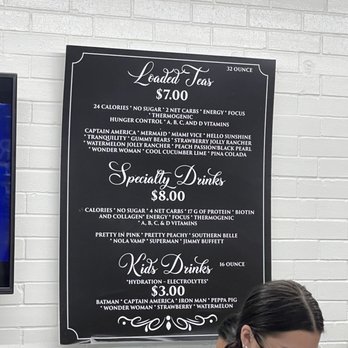 Loaded Teas
32 OUNCE
$7.00
24 CALORIES * NO SUGAR * 2 NET CARBS * ENERGY * FOCUS
* THERMOGENIC
HUNGER CONTROL * A, B, C, AND D VITAMINS
CAPTAIN AMERICA * MERMAID * MIAMI VICE * HELLO SUNSHINE
* TRANQUILITY * GUMMY BEARS * STRAWBERRY JOLLY RANCHER
* WATERMELON JOLLY RANCHER * PEACH PASSION*BLACK PEARL
* WONDER WOMAN * COOL CUCUMBER LIME * PINA COLADA
Specialty Drinks
$8.00
CALORIES * NO SUGAR * 4 NET CARBS * 17 G OF PROTEIN * BIOTIN
AND COLLAGEN* ENERGY * FOCUS * THERMOGENIC
* A, B, C, & D VITAMINS
PRETTY IN PINK * PRETTY PEACHY * SOUTHERN BELLE
* NOLA VAMP * SUPERMAN * JIMMY BUFFETT
Kids Drinks
16 OUNCE
*HYDRATION - ELECTROLYTES*
$3.00
BATMAN * CAPTAIN AMERICA * IRON MAN * PEPPA PIG
* WONDER WOMAN * STRAWBERRY * WATERMELON